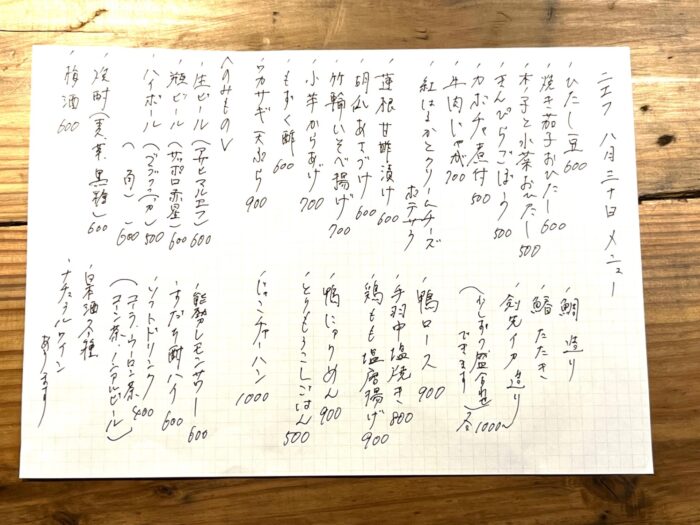 ニエフ 八月三十日 メニュー
・ひたし豆 600
・焼き茄子おひたし 600
・木ノ子と水菜おひたし 500
・きんぴらごぼう 500
・カボチャ煮付 500
・牛肉じゃが 700
・紅はるかとクリームチーズ
ポテサラ
・蓮根甘酢漬け 600
・胡瓜あさづけ 600
・竹輪いそべ揚げ 700
・小芋からあげ 700
・もずく酢 600
・ワカサギ天ぷら 900
・鯛 造り
・鰺 たたき
・剣先イカ 造り
(少しずつ盛合せ
できます) 1000〜
・鴨ロース 900
・手羽中塩焼き 800
・鶏もも塩唐揚げ 900
・鴨にゅうめん 900
・とうもろこしごはん 500
・じゃこチャーハン 1000
<のみもの>
・生ビール (アサヒマルエフ) 600
・瓶ビール (サッポロ赤星) 600
・ハイボール (ブラックニッカ) 500
( 角 ) 600
・焼酎 (麦、芋、黒糖) 600
・梅酒 600
・能勢レモンサワー 600
・すだち酎ハイ 600
・ソフトドリンク 400
(コーラ、ウーロン茶
コーン茶、ノンアルビール)
・日本酒 各種
・ナチュラルワイン
あります